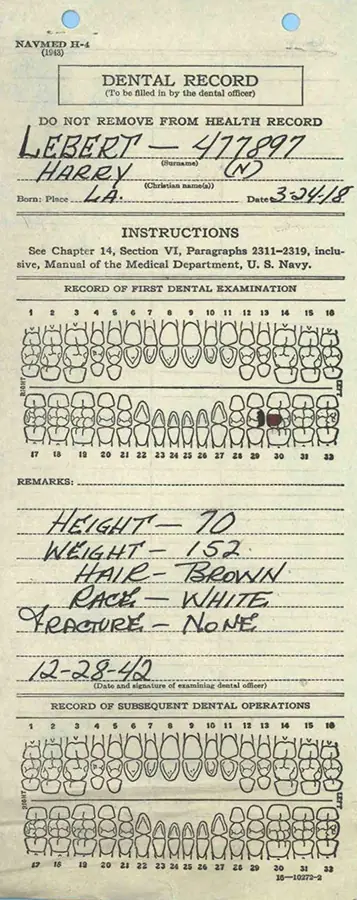 NAVMED H-4
(1943)
DENTAL RECORD
(To be filled in by the dental officer)
DO NOT REMOVE FROM HEALTH RECORD
LEBERT — 477897
(Surname)
HARRY (N)
(Christian name(s))
Born: Place LA. Date 3-24-18
INSTRUCTIONS
See Chapter 14, Section VI, Paragraphs 2311–2319, inclu-
sive, Manual of the Medical Department, U. S. Navy.
RECORD OF FIRST DENTAL EXAMINATION
1 2 3 4 5 6 7 8 9 10 11 12 13 14 15 16
RIGHT LEFT
17 18 19 20 21 22 23 24 25 26 27 28 29 30 31 32
REMARKS:
HEIGHT — 70
WEIGHT — 152
HAIR — BROWN
RACE — WHITE
FRACTURE — NONE
12-28-42
(Date and signature of examining dental officer)
RECORD OF SUBSEQUENT DENTAL OPERATIONS
1 2 3 4 5 6 7 8 9 10 11 12 13 14 15 16
RIGHT LEFT
17 18 19 20 21 22 23 24 25 26 27 28 29 30 31 32
16—10272-2